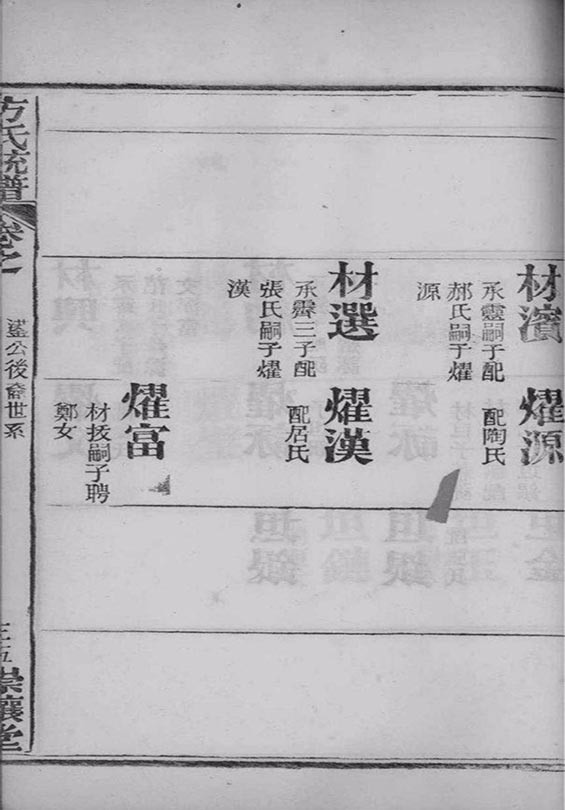 材濱
承靈嗣子配
郝氏嗣子燿
源
燿源
配陶氏
材選
承霽三子配
張氏嗣子燿
漢
燿漢
配居氏
燿富
材抜嗣子聘
鄭女
方氏統譜
卷之
鋈公後裔世系
三五
崇讓堂